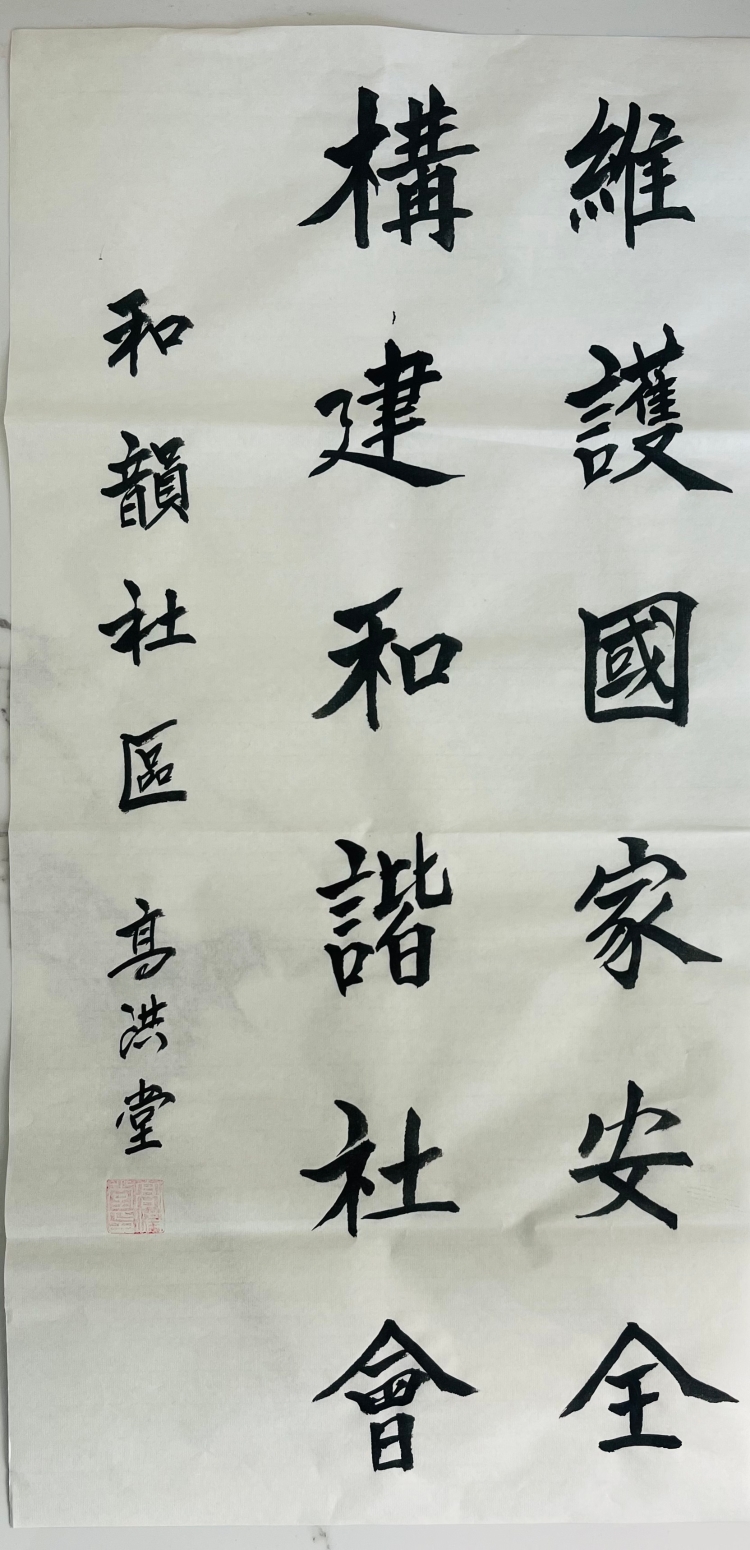 維護國家安全
構建和諧社會
和韻社區 高洪堂